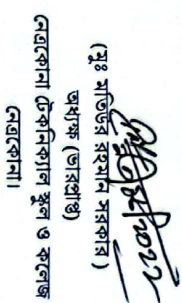 (মুঃ মতিউর রহমান সরকার)
অধ্যক্ষ (ভারপ্রাপ্ত)
নেত্রকোনা টেকনিক্যাল স্কুল ও কলেজ
নেত্রকোনা।